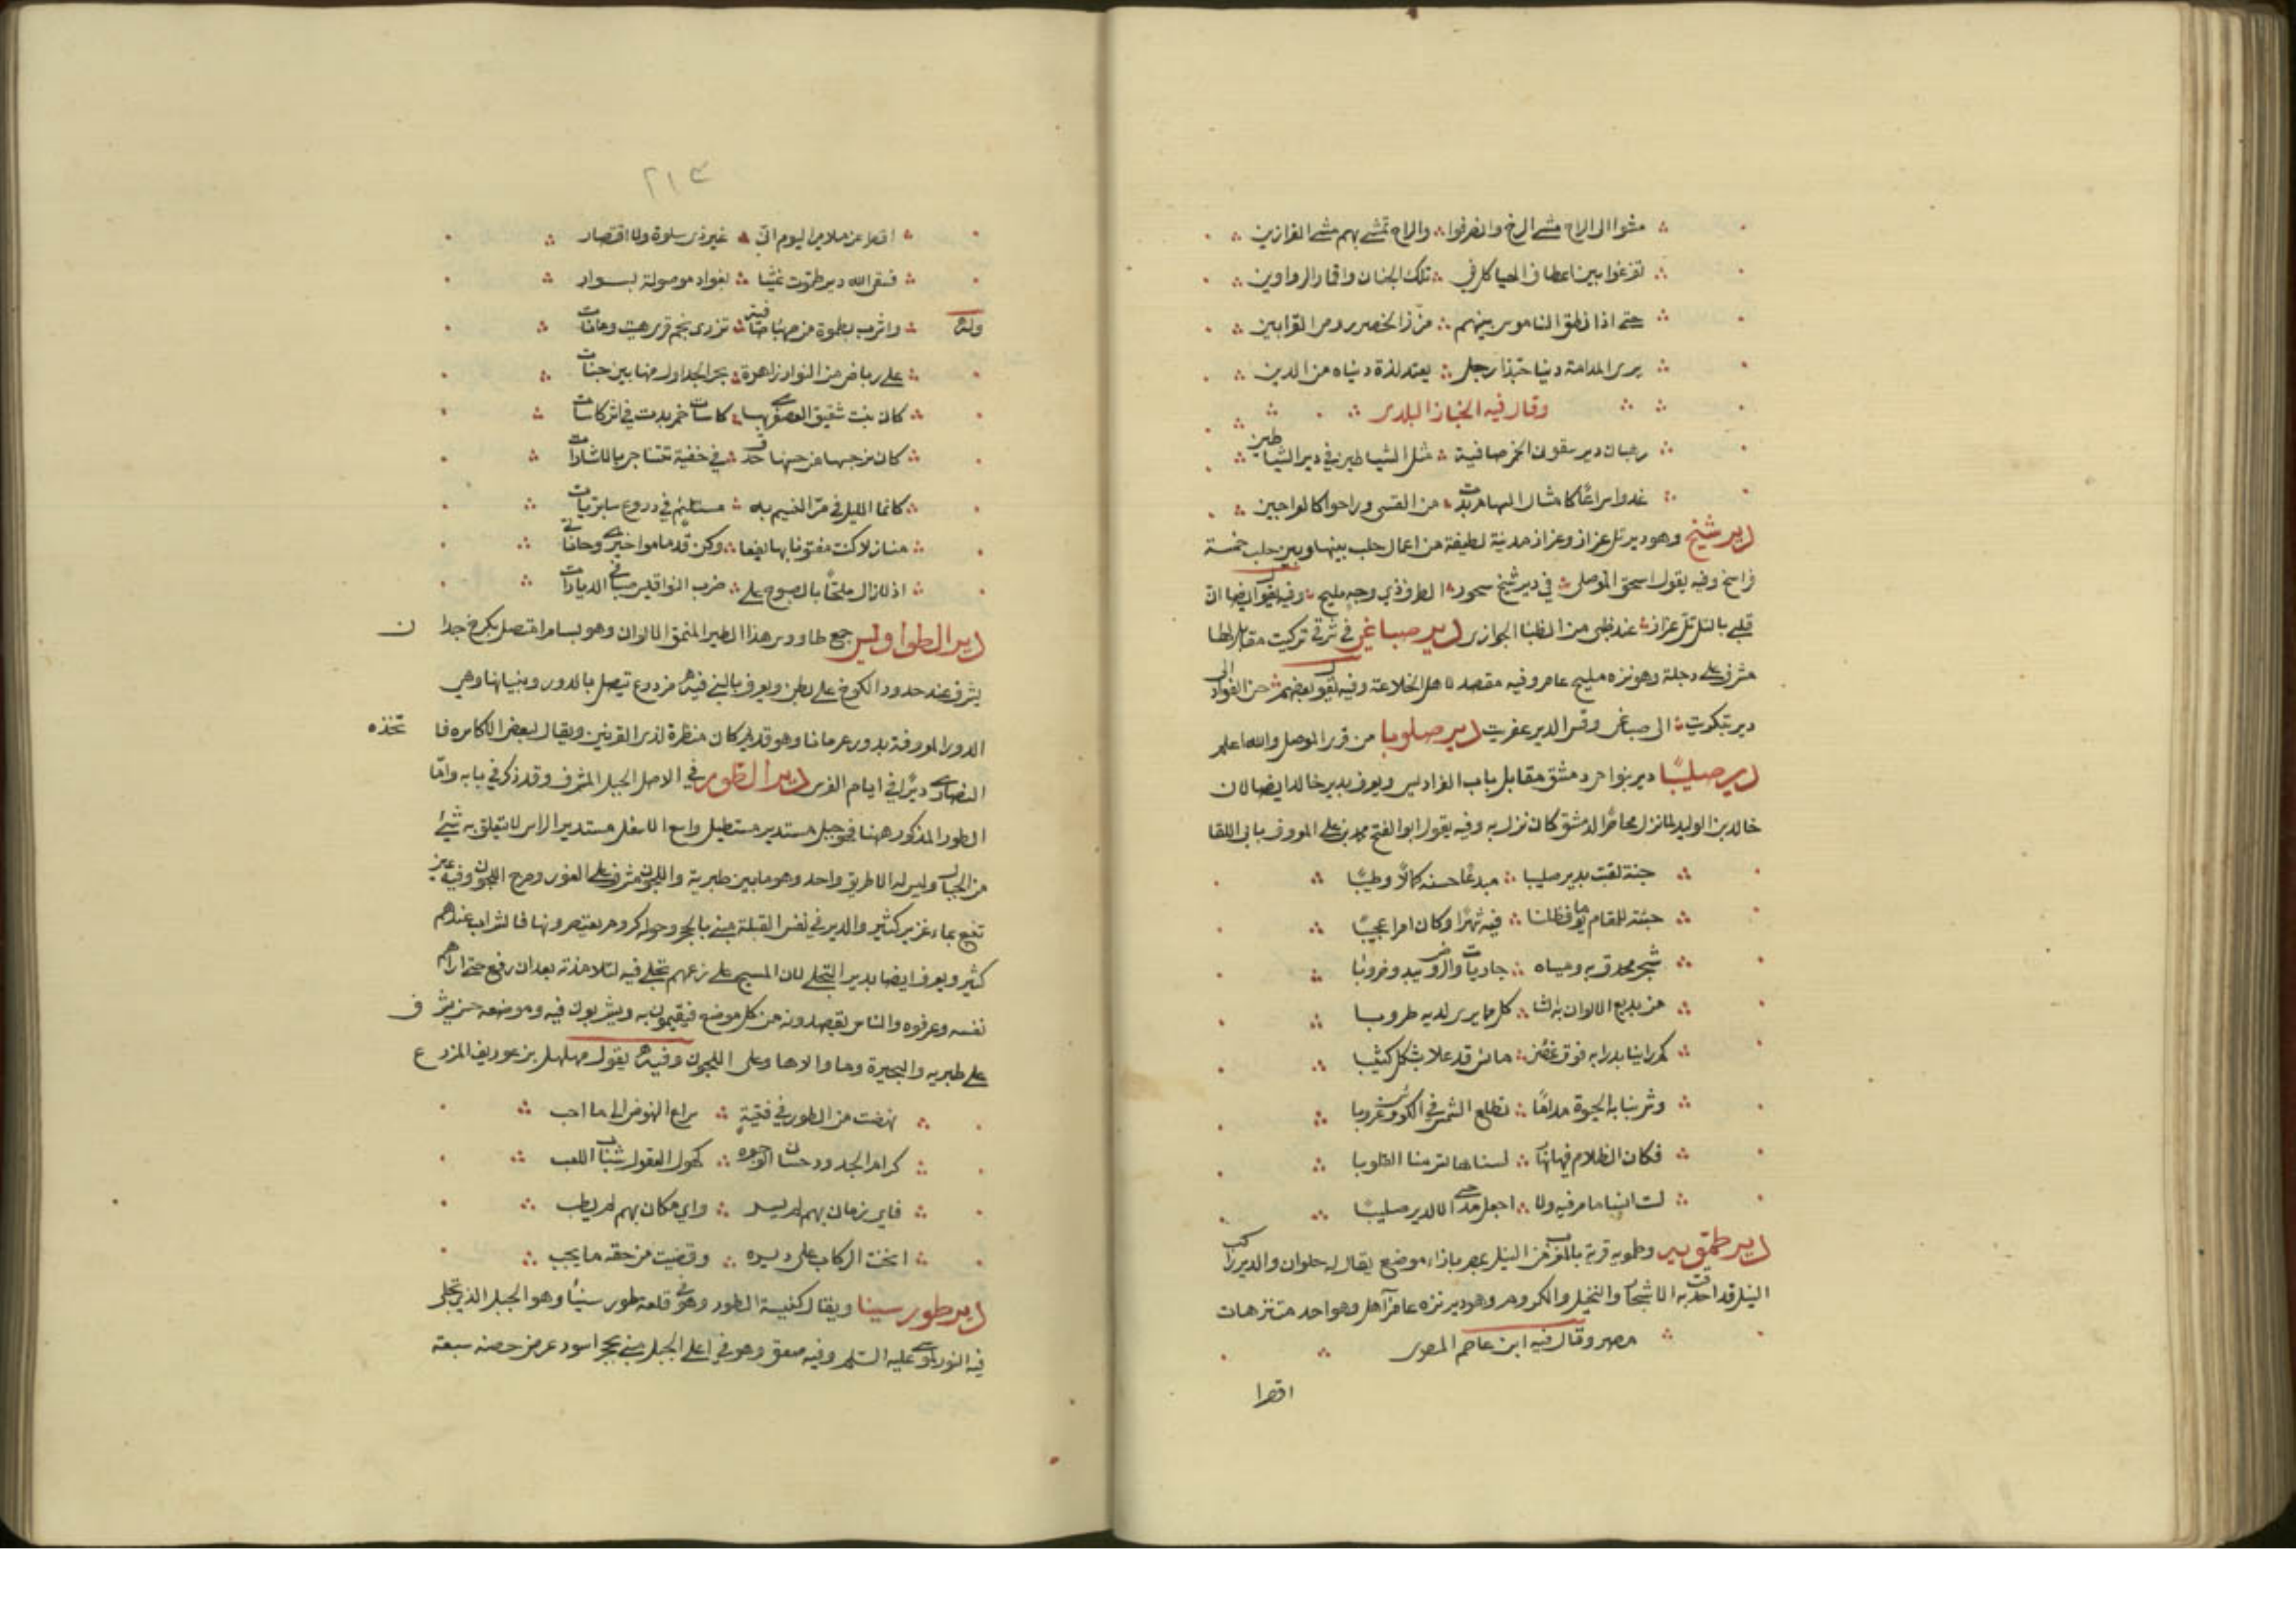 مشوا الى الراح مشي الرخ وانصرفوا ∴ والراح تمشي بهم مشي الفرازين
تفرغوا بين اعطاف الهياكل في ∴ تلك الجنان واقمار الدواوين
حتى اذا نطق الناموس بينهم ∴ مزنر الخصر رومي القرابين
يرى المدامة دنيا حبذا رجل ∴ يعتد لذة دنياه من الدين
وقال فيه الخباز البلدي
رهبان دير سقوني الخمر صافية ∴ مثل الشياطين في دير الشياطين
غدوا سراعا كامثال السهام بدت ∴ من القسي وراحوا كالعراجين
دير شيخ وهو دير تل عزاز وعزاز مدينة لطيفة من اعمال حلب بينها وبين حلب خمسة
فراسخ وفيه يقول اسحق الموصلي ∴ في دير شيخ سحور ∴ الطرف ذي وجه مليح ∴ وفيه يقول ايضا ان
قلبي بالتل تل عزاز ∴ عند ظبي من الظبا الجوازي دير صباغي في شرقي تكريت مقابل لها
مشرف على دجلة وهو نزه مليح عامر وفيه مقصد لاهل الخلاعة وفيه يقول بعضهم ∴ حن الفؤاد الى
دير بتكريت ∴ الى صباغي وقس الدير عفريت دير صلوبا من قرى الموصل والله اعلم
دير صليبا دير بنواحي دمشق مقابل باب الفراديس ويعرف بدير خالد ايضا لان
خالد بن الوليد لما نزل محاصرا لدمشق كان نزل به وفيه يقول ابو الفتح محمد بن علي المعروف بابي اللقا
جنة لقبت بدير صليبا ∴ مبدعا حسنه كمالا وطيبا
جئته للمقام يوما فظلنا ∴ فيه شهرا وكان امرا عجيبا
شجر محدق به ومياه ∴ جاريات والروض يبدو ضروبا
من بديع الالوان به الثا ∴ كل مما يرى لديه طروبا
كم راينا بدرا به فوق غصن ∴ مائس قد علا بشكل كثيبا
وشربنا به الحيوة مداما ∴ تطلع الشمس في الكؤوس غروبا
فكان الظلام فيها نهار ∴ لسناها تسر منا القلوبا
لست انسا ما مر فيه ولا ∴ اجعل مدحي الا لدير صليبا
دير طمويه وطمويه قرية بالمغرب من النيل بمصر بازاء موضع يقال له حلوان والدير راكب
النيل قد احدقت به الاشجار والنخيل والكروم وهو دير نزه عامر آهل وهو احد متنزهات
مصر وقال فيه ابن عاصم المصري
اقصرا
٢١٣
اقصرا عن ملامي اليوم اني ∴ غير ذي سلوة ولا اقتصار
فسقى الله دير طمويه غيثا ∴ بغواد موصولة بسوار
وله واشرب بطموة من صهباء صافية ∴ تزري بخمر قرى هيت وعانات
على رياض من النوار زاهرة ∴ تجري الجداول منها بين جنات
كان نبت شقيق العصفري بها ∴ كاسات خمر بدت في اثر كاسات
كان نرجسها من حسنها حدق ∴ في خفية تتناجى بالاشارات
كانما النيل في مر النسيم به ∴ مستلئم في دروع سابريات
منازلا كنت مفتونا بها يفعا ∴ وكن قدما مواخيري وحاناتي
اذ لا ازال ملحا بالصبوح على ∴ ضرب النواقيس صبا في الديارات
دير الطواويس جمع طاووس هذا الطير المنمق الالوان وهو بسامرا متصل بكرخ جدان
يشرف عند حدود الكرخ على بطن ويعرف بالبني فيه مزدرع يتصل بالدور وبنيانها وهي
الدور المعروفة بدور عرمانا وهو قديم كان منظرة لذي القرنين ويقال لبعض الاكاسرة فاتخذه
النصارى ديرا في ايام الفرس دير الطور في الاصل الجبل المشرف وقد ذكر في بابه واما
الطور المذكور ههنا فهو جبل مستدير مستطيل واسع الاسفل مستدير الراس لا يتعلق به شيء
من الجبال وليس له الا طريق واحد وهو ما بين طبرية واللجون مشرف على الغور ومرج اللجون وفيه عين
تنبع بماء غزير كثير والدير في نفس القبلة مبني بالحجر وحوله كروم يعتصرونها فالشراب عندهم
كثير ويعرف ايضا بدير التجلي لان المسيح على زعمهم تجلى فيه لتلامذته بعد ان رفع حتى اراهم
نفسه وعرفوه والناس يقصدونه من كل موضع فيقيمون به ويشربون فيه وموضعه حسن يشرف
على طبرية والبحيرة وما والاها وعلى اللجون وفيه يقول مهلهل بن عريف المزرع
نهضت من الطور في فتية ∴ سراع النهوض الى ما احب
كرام الجدود حسان الوجوه ∴ كهول العقول شباب اللعب
فاي زمان بهم لم يسر ∴ واي مكان بهم لم يطب
انخت الركاب على ديره ∴ وقضيت من حقه ما يجب
دير طور سينا ويقال كنيسة الطور وهو في قلعة طور سينا وهو الجبل الذي تجلى
فيه النور لموسى عليه السلم وفيه صعق وهو في اعلى الجبل مبني بحجر اسود عرض حصنه سبعة